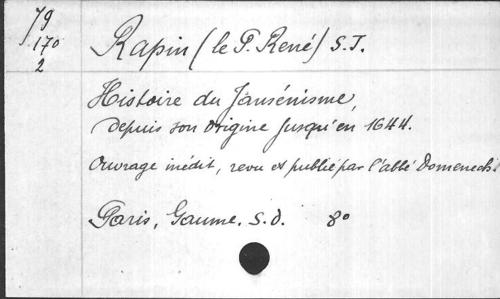 79
170
2
Rapin (le P. René) S.J.
Histoire du Jansénisme,
depuis son origine jusqu'en 1644.
Ouvrage inédit, revu et publié par l'abbé Domenech.
Paris, Gaume. S.d. 8°